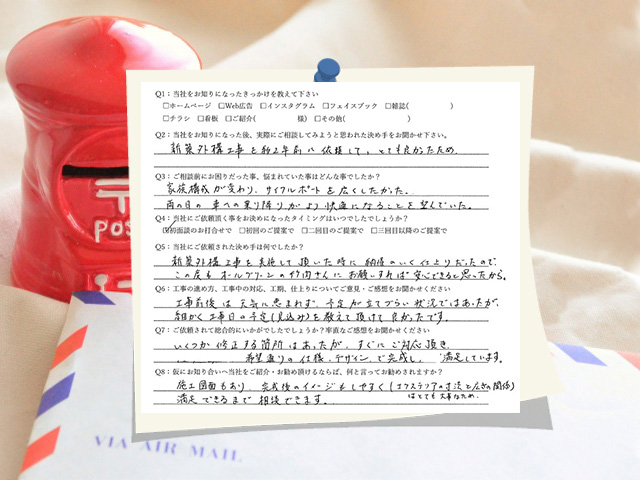 Q1：当社をお知りになったきっかけを教えて下さい
□ホームページ □Web広告 □インスタグラム □フェイスブック □雑誌( )
□チラシ □看板 □ご紹介( 様) □その他( )
Q2：当社をお知りになった後、実際にご相談してみようと思われた決め手をお聞かせ下さい。
新築外構工事を約2年前に依頼して、とても良かったため.
Q3：ご相談前にお困りだった事、悩まれていた事はどんな事でしたか？
家族構成が変わり、サイクルポートを広くしたかった。
雨の日の車への乗り降りがより快適になることを望んでいた。
Q4：当社にご依頼頂く事をお決めになったタイミングはいつでしたでしょうか？
☑初面談のお打合せで □初回のご提案で □二回目のご提案で □三回目以降のご提案で
Q5：当社にご依頼された決め手は何でしたか？
新築外構工事を実施して頂いた時に納得のいく仕上りだったので
この度もオールグリーンの竹内さんにお願いすれば安心できると思ったから。
Q6：工事の進め方、工事中の対応、工期、仕上りについてご意見・ご感想をお聞かせください
工事前後は天気に恵まれず、予定が立てづらい状況ではあったが、
細かく工事日の予定(見込み)を教えて頂けて良かったです。
Q7：ご依頼されて総合的にいかがでしたでしょうか？率直なご感想をお聞かせください
いくつか修正する箇所はあったが、すぐにご対応頂き
希望通りの仕様、デザインで完成し、満足しています。
Q8：仮にお知り合いへ当社をご紹介・お勧め頂けるならば、何と言ってお勧めされますか？
施工図面もあり、完成後のイメージもしやすく(エクステリアの寸法と広さの関係)
はとても大事なため.
満足できるまで相談できます。
POS
VIA AIR MAIL